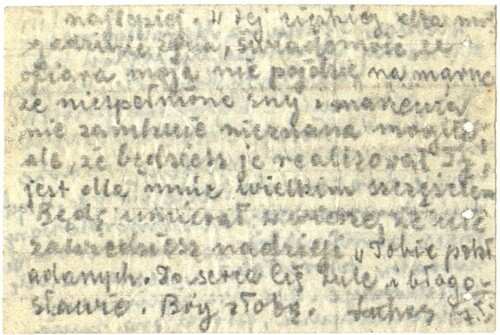 najlepiej. W tej ciężkiej dla mnie
godzinie życia, świadomość, że
ofiara moja nie pójdzie na marne
że niespełnione sny i marzenia
nie zamknie nieznana mogiła
ale, że będziesz je realizował Ty,
jest dla mnie wielkim szczęściem.
Będę umierał z wiarą, że nie
zawiedziesz nadziei „Tobie pokł
adanych. Do serca Cię tulę i błogo-
sławię. Bóg z Tobą.